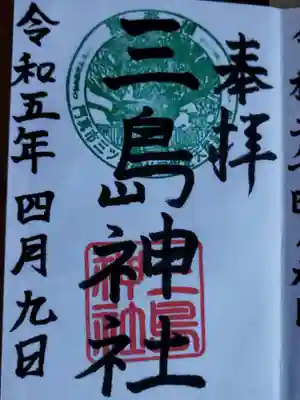 奉拝
三島神社
三島神社
令和五年四月九日